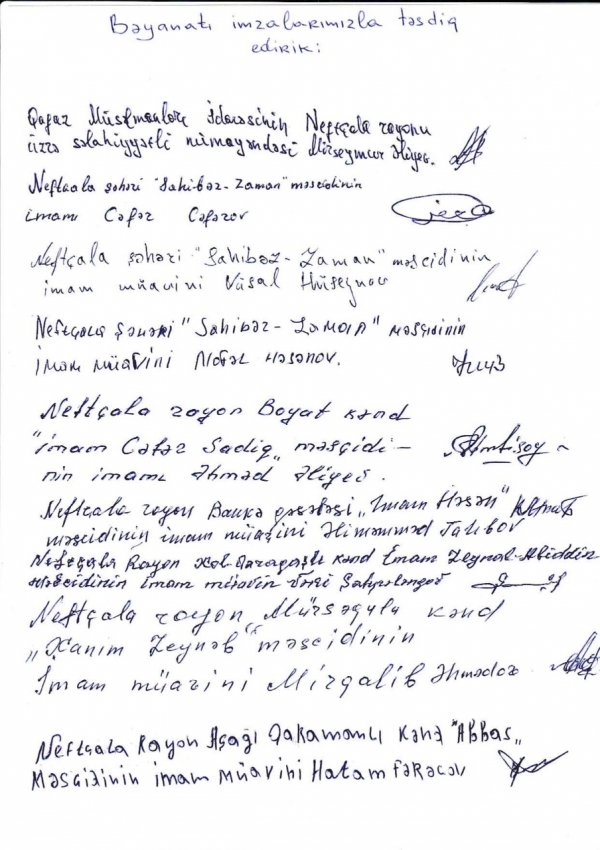 Bəyanatı imzalarımızla təsdiq
edirik:
Qafqaz Müsəlmanları İdarəsinin Neftçala rayonu
üzrə səlahiyyətli nümayəndəsi Mirseymur Əliyev.
Neftçala şəhəri "Sahibəz-Zaman" məscidinin
imamı Cəfər Cəfərov
Neftçala şəhəri "Sahibəz-Zaman" məscidinin
imam müavini Vüsal Hüseynov
Neftçala şəhəri "Sahibəz-Zaman" məscidinin
İmam müavini Həsənov.
Neftçala rayon Boyat kənd
"imam Cəfər Sadiq" məscidi-
nin imamı Əhməd Əliyev.
Neftçala rayon Bankə qəsəbəsi "İmam Həsən"
məscidinin imam müavini Əliməmməd Talıbov
Neftçala Rayon Xol Qaraqaşlı kənd İmam Zeynal-Abiddin
məscidinin imam müavin
Neftçala rayon Mürsəqulu kənd
"Xanım Zeynəb" məscidinin
İmam müavini Mirqalib Əhmədov
Neftçala Rayon Aşağı Qaramanlı kənd "Abbas"
Məscidinin imam müavini Hatəm Fərəcov